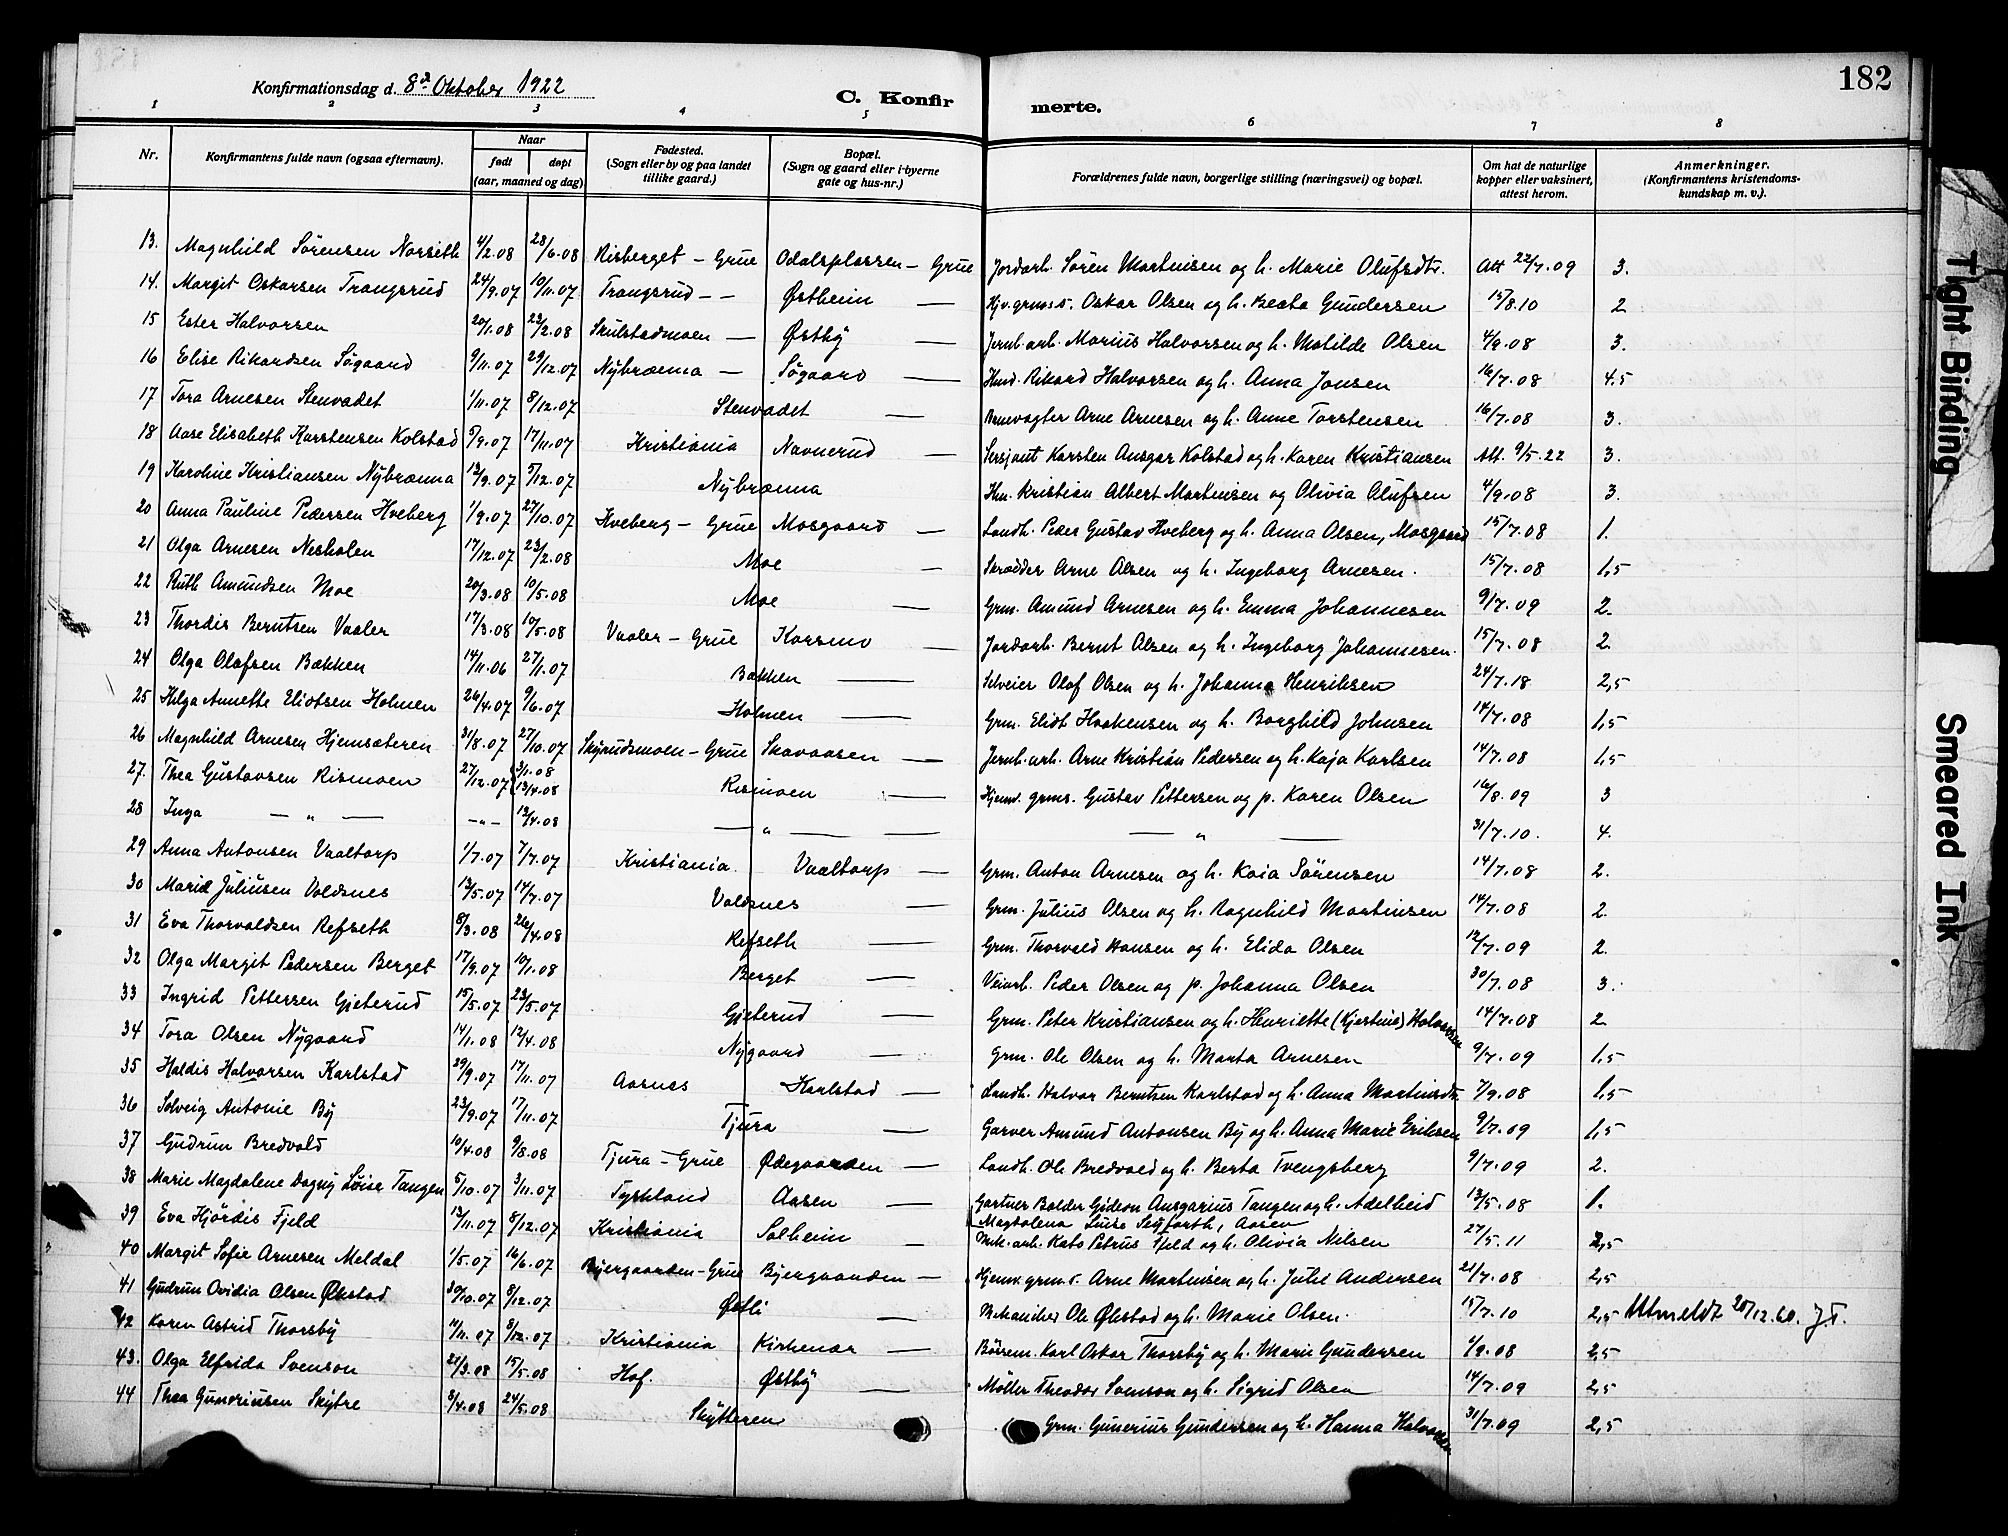 182
Konfirmationsdag d. 8de Oktober 1922
C. Konfir merte.
1 2 3 4 5 6 7 8
Nr. Konfirmantens fulde navn (ogsaa efternavn). Naar født døpt (aar, maaned og dag) Fødested. (Sogn eller by og paa landet tillike gaard.) Bopæl. (Sogn og gaard eller i byerne gate og hus-nr.) Forældrenes fulde navn, borgerlige stilling (næringsvei) og bopæl. Om hat de naturlige kopper eller vaksinert, attest herom. Anmerkninger. (Konfirmantens kristendoms-kundskap m. v.).
13. Magnhild Sørensen Norseth 4/2.08 28/6.08 Risberget – Grue Odalsplassen – Grue Jordarb. Søren Martinsen og h. Marie Olufsdtr. Att 22/7.09 3.
14. Margit Oskarsen Trangsrud 24/9.07 10/11.07 Trangsrud – – Østheim — Hjv. grms. Oskar Olsen og h. Beata Gundersen 15/8.10 2
15 Ester Halvorsen 20/1.08 23/2.08 Skulstadmoen — Østby — Jernb. arb. Marius Halvorsen og h. Matilde Olsen 4/9.08 3.
16 Elise Rikardsen Søgaard 9/11.07 29/12.07 Nybrænna — Søgaard — Hmd. Rikard Halvorsen og h. Anna Jonsen 16/7.08 4.5
17 Tora Arnesen Stenvadet 1/11.07 8/12.07 Stenvadet — Brnevogter Arne Arnesen og h. Anne Torstensen 16/7.08 3.
18 Aase Elisabeth Karstensen Kolstad 5/9.07 17/11.07 Kristiania Navnerud — Sersjant Karsten Ansgar Kolstad og h. Karen Kristiansen Att. 9/5.22 3.
19 Karoline Kristiansen Nybrænna 13/9.07 5/12.07 Nybrænna Hm. Kristian Albert Martinsen og Olivia Olufsen 4/9.08 3.
20 Anna Pauline Pedersen Hveberg 1/9.07 27/10.07 Hveberg – Grue Mosgaard — Landh. Peder Gustav Hveberg og h. Anna Olsen, Mosgaard 15/7.08 1.
21 Olga Arnesen Nesholen 17/12.07 23/2.08 Moe — Skrædder Arne Olsen og h. Ingeborg Arnesen. 15/7.08 1,5
22 Ruth Amundsen Moe 20/3.08 10/5.08 Moe — Grm. Amund Arnesen og h. Emma Johannesen 9/7.09 2.
23 Thordis Berntsen Vaaler 17/3.08 10/5.08 Vaaler – Grue Korsmo — Jordarb. Bernt Olsen og h. Ingeborg Johannesen. 15/7.08 2.
24 Olga Olafsen Bækken 14/11.06 27/1.07 Bækken — Selveier Olaf Olsen og h. Johanna Henriksen 24/7.18 2,5
25 Helga Annette Eliotsen Holmen 26/4.07 9/6.07 Holmen — Grm. Elidt Haakensen og h. Borghild Johnsen 14/7.08 1,5
26 Magnhild Arnesen Hjemsæteren 31/8.07 27/10.07 Skyrudsmoen – Grue Skavaasen — Jernb. arb. Arne Kristian Pedersen og h. Kaja Karlsen 14/7.08 1,5
27. Thea Gustavsen Rismoen 27/12.07 3/1.08 13/4.08 Rismoen — Hjemv. grms. Gustav Pettersen og p. Karen Olsen 16/8.09 3
28 Inga — " — – " – 13/4.08 — " — — — " — 31/7.10. 4.
29 Anna Antonsen Vaaltorp 1/7.07 7/7.07 Kristiania. Vaaltorp — Grm. Anton Arnesen og h. Kaia Sørensen 14/7.08 2.
30 Marie Juliusen Voldsnes 13/5.07 14/7.07 Voldsnes — Grm. Julius Olsen og h. Ragnhild Martinsen 14/7.08 2.
31 Eva Thorvaldsen Refseth 8/3.08 26/4.08 Refseth — Grm. Thorvald Hansen og h. Elida Olsen 12/7.09 2.
32 Olga Margit Pedersen Berget 17/9.07 10/1.08 Berget — Veiarb. Peder Olsen og p. Johanna Olsen 30/7.08 3.
33 Ingrid Pettersen Gjeterud 15/5.07 23/5.07 Gjeterud — Grm. Peter Kristiansen og h. Henriette (Kjerstine) Halvorsen 14/7.08 2
34 Tora Olsen Nygaard 14/1.08 12/4.08 Nygaard — Grm. Ole Olsen og h. Marta Arnesen 9/7.09 1,5
35 Haldis Halvorsen Karlstad 29/9.07 17/11.07 Aasnes Karlstad — Landh. Halvor Berntsen Karlstad og h. Anna Martinsdtr. 7/9.08 1,5
36 Solveig Antonie By 23/9.07 17/11.07 Tjura — Garver Amund Antonsen By og h. Anna Marie Eriksen 9/7.09 1,5
37 Gudrun Bredvold 10/4.08 9/8.08 Tjura – Grue Ødegaarden — Landh. Ole Bredvold og h. Berta Tvengsberg 9/7.09 2.
38 Marie Magdalene Dagny Loise Tangen 5/10.07 3/11.07 Tyskland Aasen — Gartner Balder Gideon Ansgarius Tangen og h. Adelheid Magdalena Luise Seyforth, Aasen 13/5.08 1.
39 Eva Hjördis Fjeld 13/11.07 8/12.07 Kristiania Solheim — Mek. arb. Kato Petrus Fjeld og h. Olivia Nilsen 27/5.11 2,5
40 Margit Sofie Arnesen Meldal 1/5.07 16/6.07 Byergaarden – Grue Byergaarden — Hjemv. grms. Arne Martinsen og h. Julie Andersen 21/7.08 2,5
41 Gudrun Ovidia Olsen Økstad 30/10.07 8/12.07 Østli — Mekaniker Ole Økstad og h. Marie Olsen. 15/7.10 2,5 Utmeldt 20/12.60. J.T.
42 Karen Astrid Thorsby 11/11.07 8/12.07 Kristiania Kirkenær — Børem. Karl Oskar Thorsby og h. Marie Gundersen 1/9.08 2,5
43. Olga Elfrida Svenson 21/3.08 15/5.08 Hof. Østby — Møller Theodor Svenson og h. Sigrid Olsen 14/7.09 2,5
44 Thea Guneriusen Skytre 3/4.08 24/5.08 Skytteren Grm. Gunerius Gundersen og h. Hanna Halvorsen 31/7.09 2,5
Tight Binding
Smeared Ink